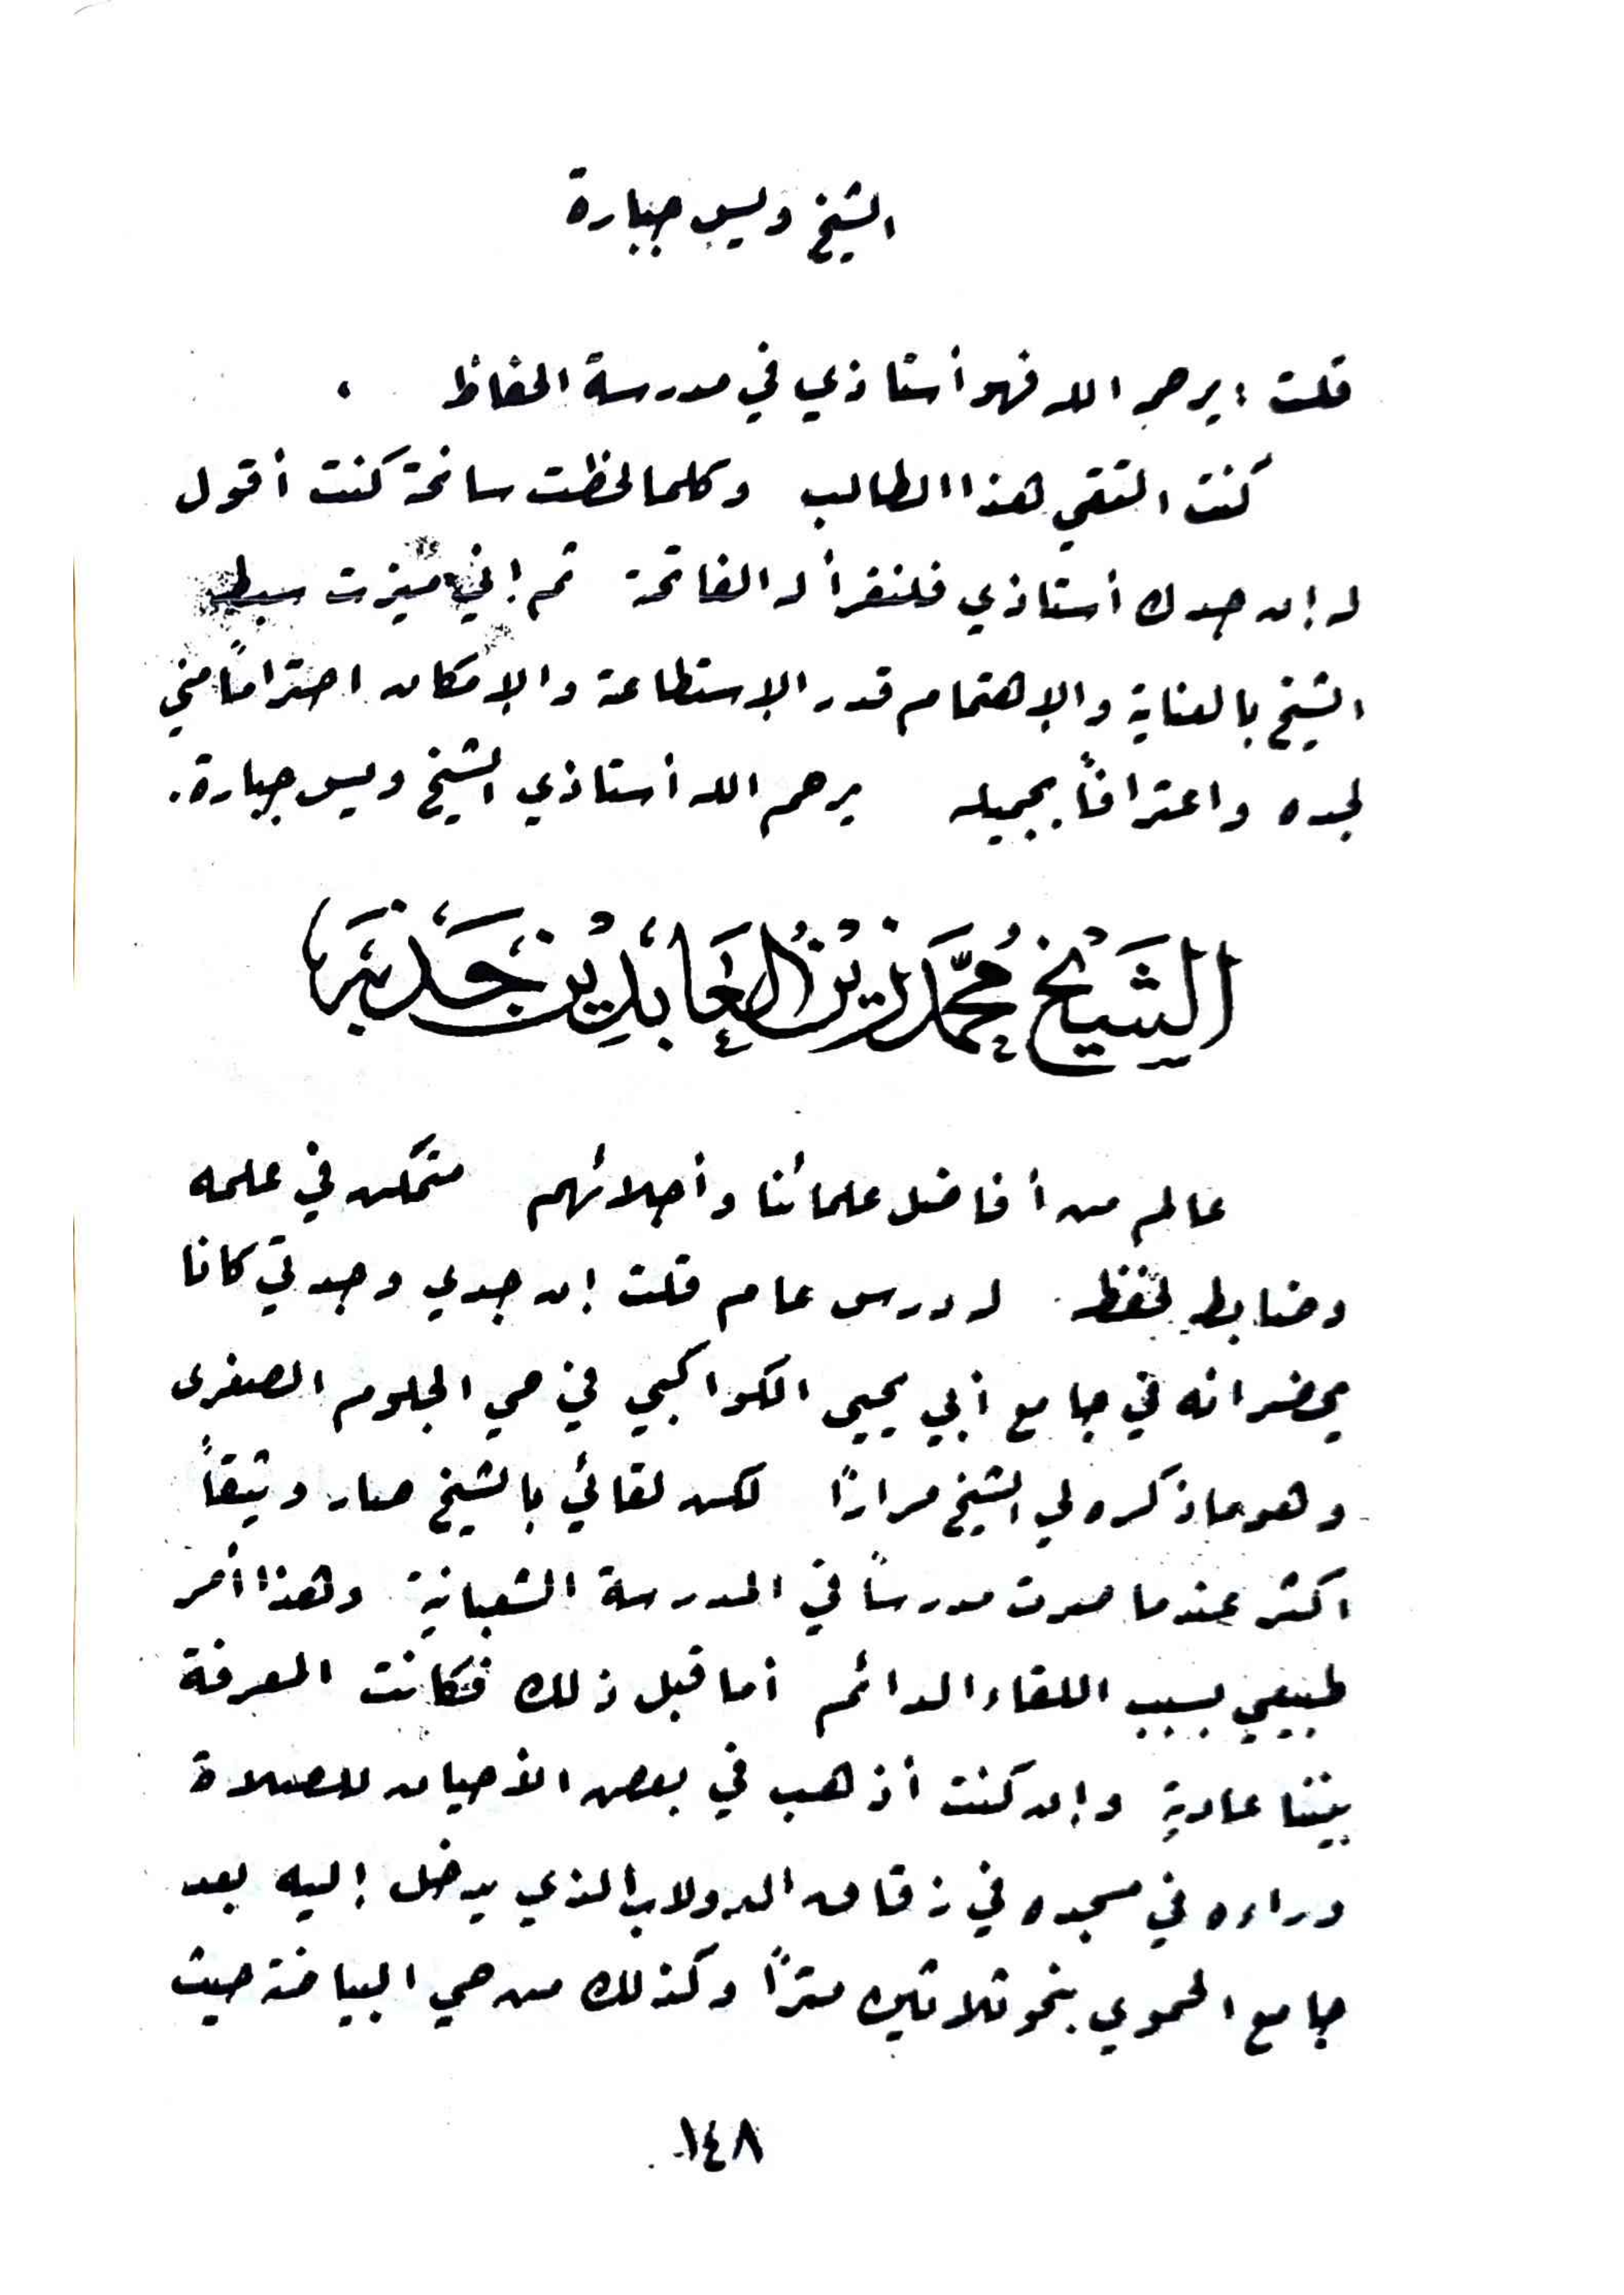 الشيخ ويس جبارة
قلت : يرحمه الله فهو أستاذي في مدرسة الحفاظ .
كنت التقي هذا الطالب وكلما لحظت سانحة كنت أقول
له إن جدك أستاذي فلنقرأ له الفاتحة ثم إني ميزت سبط
الشيخ بالعناية والإهتمام قدر الإستطاعة والإمكان احتراماً مني
لجده واعترافاً بجميله يرحم الله أستاذي الشيخ ويس جبارة .
الشَّيْخ مُحَمَّد زَيْنُ العَابِدِيْن جَذْبَة
عالم من أفاضل علمائنا وأجلائهم متمكن في علمه
وضابط لحفظه له درس عام قلت إن جدي وجدتي كانا
يحضرانه في جامع أبي يحيى الكواكبي في حي الجلوم الصغرى
وهو ما ذكره لي الشيخ مراراً لكن لقائي بالشيخ صار وثيقاً
اكثر عندما صرت مدرساً في المدرسة الشعبانية وهذا أمر
طبيعي بسبب اللقاء الدائم أما قبل ذلك فكانت المعرفة
بيننا عادية وإن كنت أذهب في بعض الأحيان للصلاة
وراءه في مسجده في زقاق الدولاب الذي يدخل إليه بعد
جامع الحموي بنحو ثلاثين متراً وكذلك من حي البياضة حيث
١٤٨